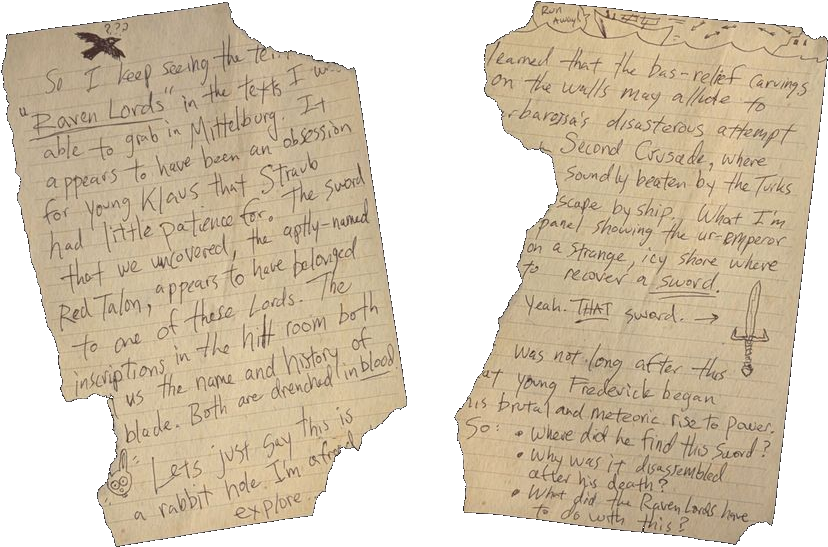 ???
So I keep seeing the
"Raven Lords" in the texts I
able to grab in Mittelburg. It
appears to have been an obsession
for young Klaus that Straub
had little patience for. The sword
that we uncovered, the aptly-named
Red Talon, appears to have belonged
to one of these Lords. The
inscriptions in the hilt room both
us the name and history of
blade. Both are drenched in blood.
Lets just say this is
a rabbit hole I'm afraid
explore.
Run
Away!
learned that the bas-relief carvings
on the walls may allude to
rbarossa's disasterous attempt
Second Crusade, where
soundly beaten by the Turks
scape by ship. What I'm
panel showing the ur-emperor
on a strange, icy shore where
to recover a sword.
Yeah. THAT sword. →
was not long after this
at young Frederick began
his brutal and meteoric rise to power.
So: • Where did he find this sword?
• Why was it disassembled
after his death?
• What did the Raven Lords have
to do with this?